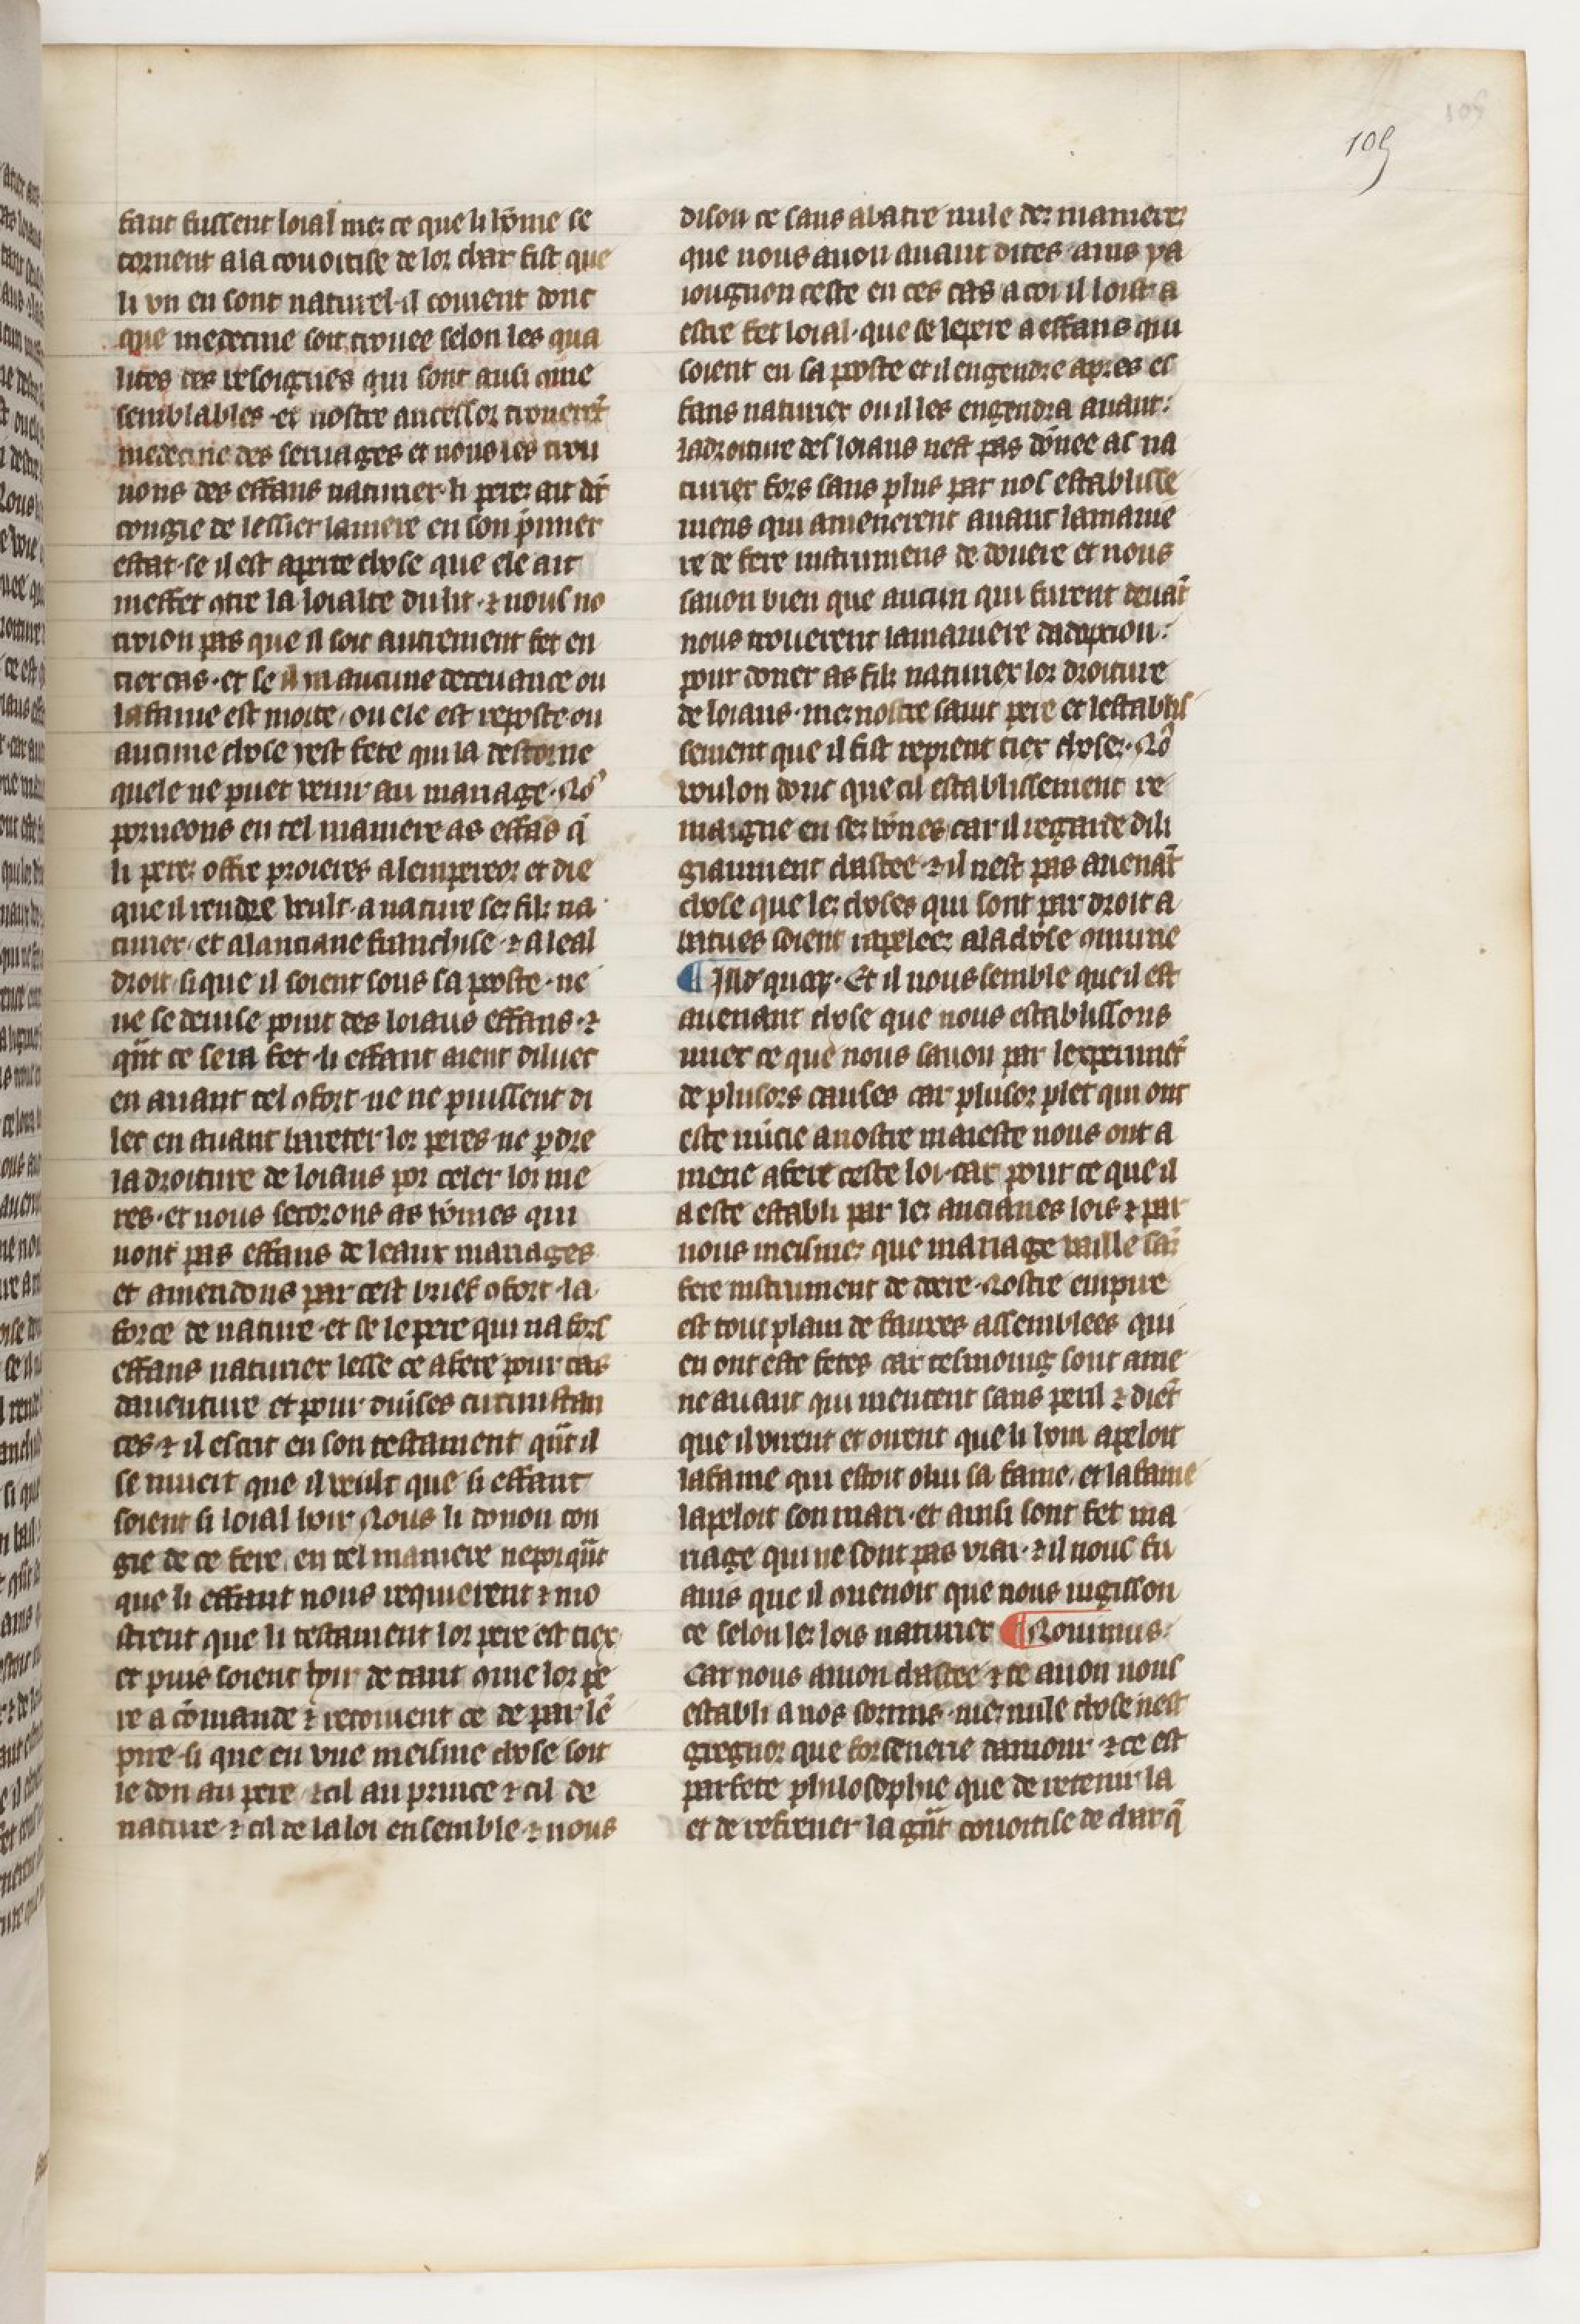 105
fant fussent loial mez ce que li hōme se
tornent a la couoitise de lor char fist que
li vn en sont naturel· il couient donc
que medecine soit trouee selon les qua
lites des resoignes qui sont ausi cōme
semblables· et nostre ancessor trouerēt
medecine des seruages et nous les trou
uons des effans naturier· li perez ait dōc
congie de lessier la mere en son p̄mier
estat· se il est aperte chose que ele ait
meffet ꝯtre la loialte du lit· ⁊ nous no
troion pas que il soit autrement fet en
tiex cas· et se il ni a aucune deceuance ou
la fame est morte, ou ele est reposte ou
aucune chose rest fete qui la destorne
quele ne puet venir au mariage· No᷒
porueons en tel maniere as effās q̇
li perez offre proieres a lempereor et die
que il rendre veult· a nature sez filz na
turiex· et a lanciane franchise· ⁊ a leal
droit· si que il soient sous sa poste· ne
ne se deuise point des loiaus effans· ⁊
qn̄t ce sera fet· li effant aient dilueс
en auant tel ꝯfort· ne ne puissent di
lec en auant bareter lor peres· ne ꝑdre
la droiture de loiaus por celer lor me
res· et nous secorons as hōmes qui
nont pas effans de leaux mariages
et amendons par cest brief ꝯfort· la
force de nature· et se le pere qui na fors
effans naturiex lesse ce a fere pour cas
dauenture et pour diūses circunstan
ces· ⁊ il escrit en son testament qn̄t il
se muert que il veult que li effant
soient si loial hoir Nous li donon con
gie de ce fere, en tel maniere neporqn̄t
que li effant nous requierent ⁊ mo
strent que li testament lor pere est tiex
et puis soient hoir de tant cōme lor pe
re a cōmande ⁊ recoiuent ce de par lē
pire· si que en vne meisme chose soit
le don au pere ⁊ cil au prince ⁊ cil de
nature ⁊ cil de la loi ensemble· ⁊ nous
dison ce sans abatre nule dez manierez
que nous auon auant dites· ains pa
iougnon ceste en ces cas a coi il loist a
estre fet loial· que se le pere a effans qui
soient en sa poste et il engendre apres ef
fans naturiex ou il les engendra auant:
la droiture des loiaus nest pas dōnee as na
turiex fors sans plus par nos establisse
mens qui amenerent auant la manie
re de fere instrumens de douere et nous
sauon bien que aucun qui furent deuāt
nous trouerent la maniere dadoption:
pour doner as filz naturiex lor droiture
de loiaus· mez nostre saint pere et lestablis
sement que il fist reprent tiex chosez· No᷒
voulon donc que cil establissement re
maigne en sez bōnes car il regarde dili
giaument chastee· ⁊ il nest pas auenāt
chose que lez choses qui sont par droit a
batues soient rapeleez a la chose cōmune
¶ Illd' quoꝗ· Et il nous semble que il est
auenant chose que nous establissons
uuer ce que nous sauon par lexperimēt
de plusors causes car plusor plet qui ont
este nūcie a nostre maieste nous ont a
mene a fere ceste loi· car pour ce que il
a este establi par lez ancianes lois ⁊ par
nous meismez que mariage vaille sāz
fere instrument de doere· Nostre empire
est tout plain de fausses assemblees qui
en ont este fetes car tesmoing sont ame
ne auant qui mentent sans peril ⁊ diēt
que il virent et oirent que li hom apeloit
la fame qui estoit o lui sa fame, et la fame
lapeloit son mari· et ainsi sont fet ma
riage qui ne sont pas vrai· ⁊ il nous fu
auis que il ꝯuenoit que nous iugisson
ce selon lez lois naturiex ¶ Nouimus:
Car nous amon chastee ⁊ ce auon nous
establi a nos sormis· mez nule chose nest
gregnor que forsenerie damour ⁊ ce est
parfete philosophie que de retenir la
et de refrener la gn̄t couoitise de char q̄